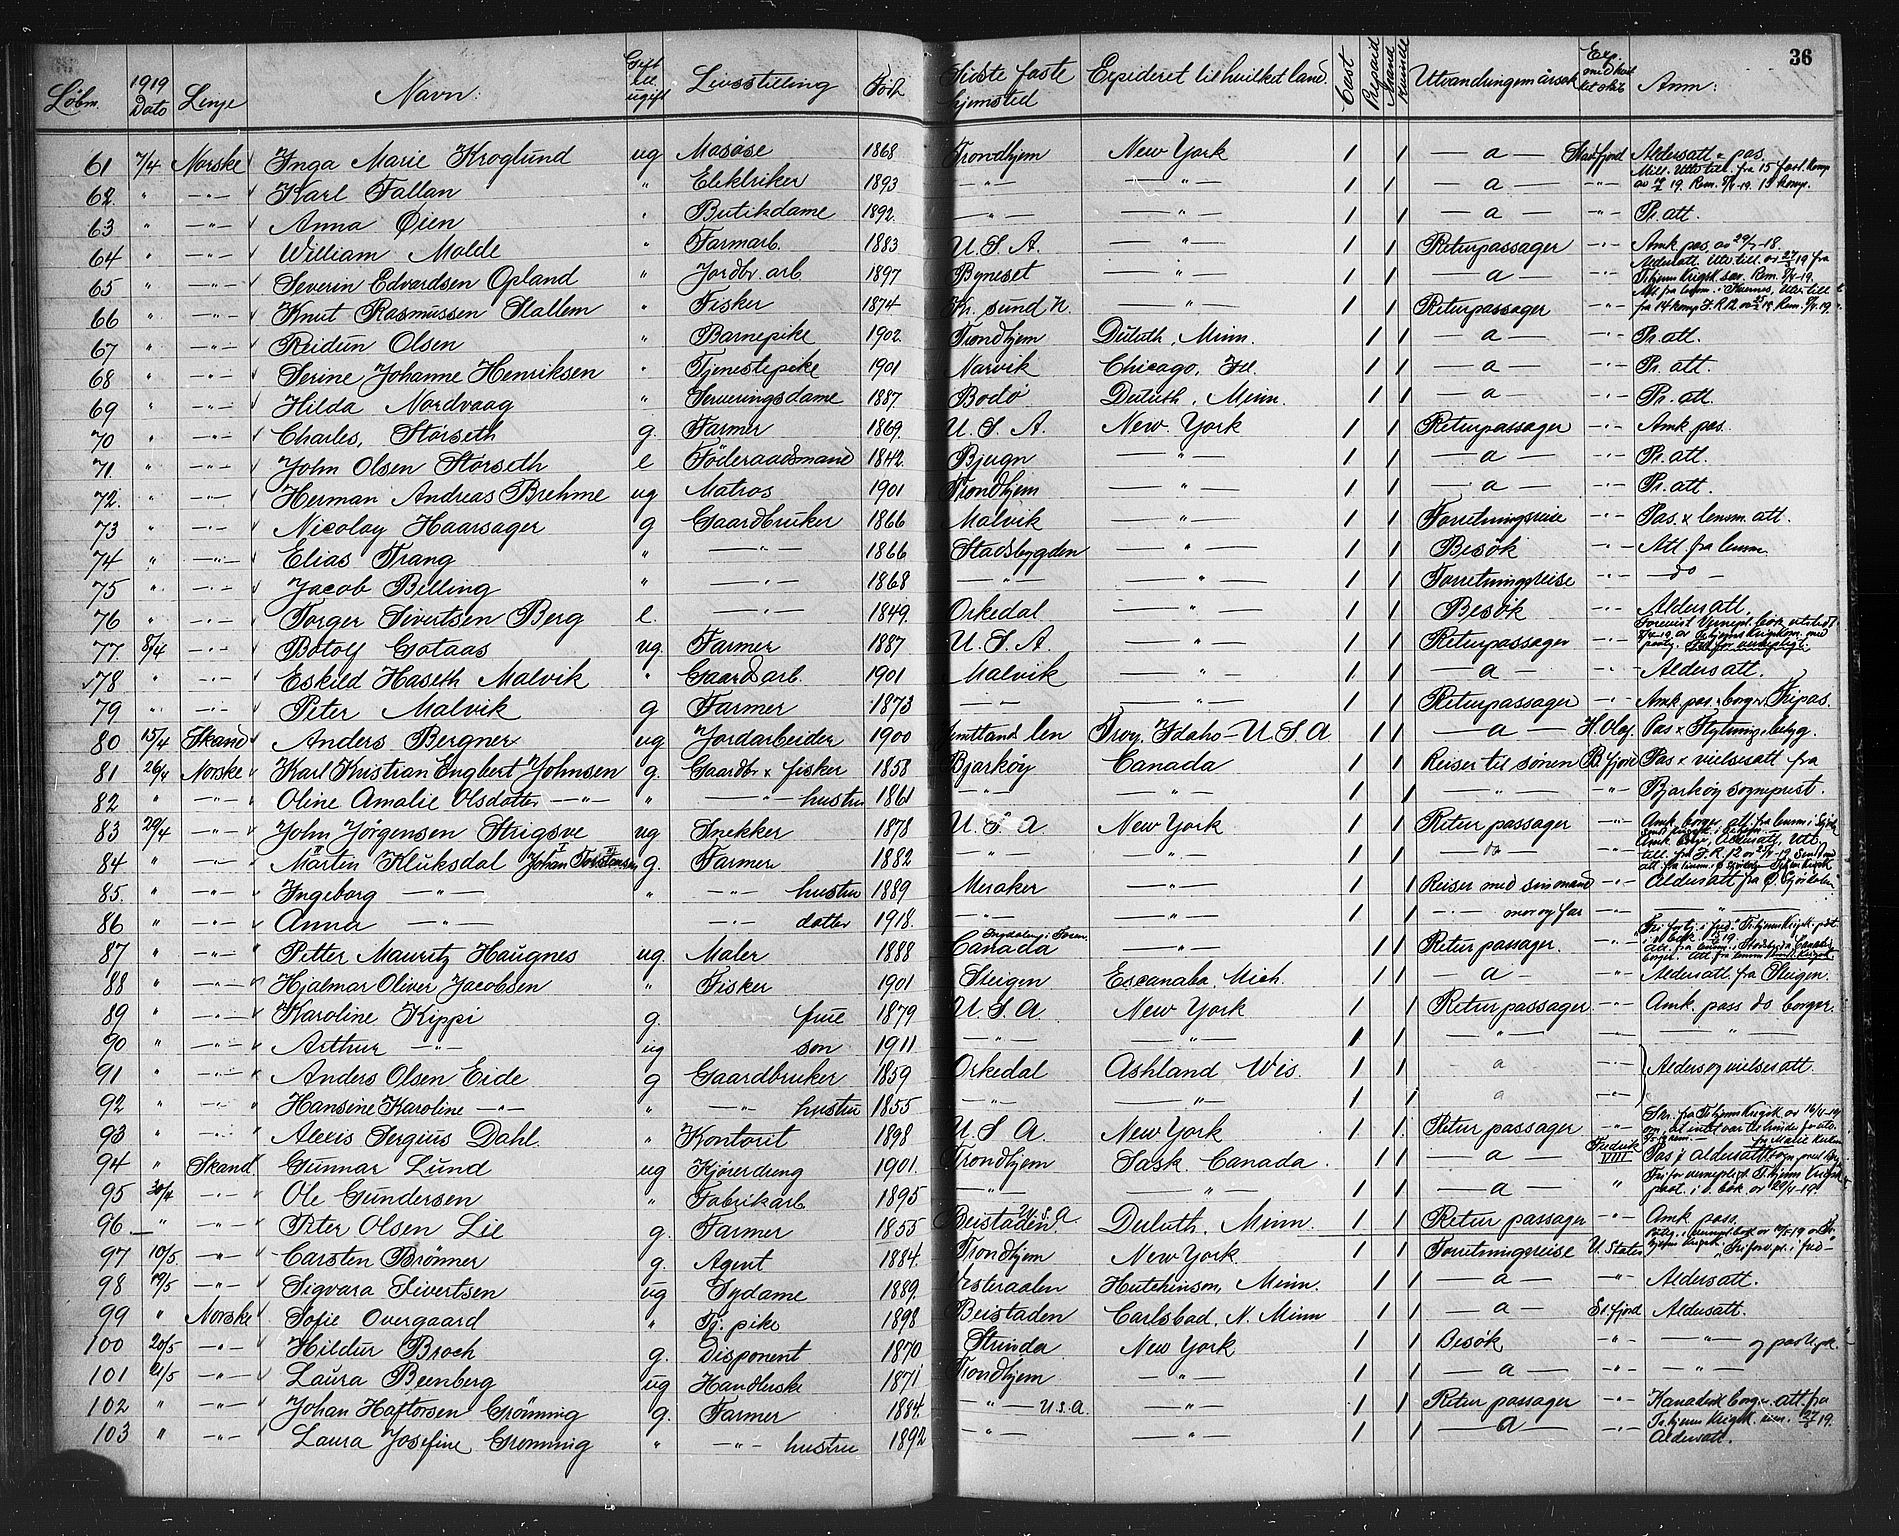 36
Løbn. 1919 Dato Linje Navn: Gift ell. ugift Livsstilling Født Sidste faste hjemsted Expideret til hvilket land. Cast Prepaid Mand Kvinde Utvandringsm årsak Exp. med hvilket skib Anm:
61 7/4 Norske Inga Marie Kroglund ug Masøse 1868 Trondhjem New York 1 1 — a — Stav.fjord Aldersatt & pas.
62 " —"— Karl Fallan " Elektriker 1893 —"— —"— 1 1 — a — —"— Mill. Utv. till. fra 15 komp.
63 " —"— Anna Øien " Butikdame 1892 —"— —"— 1 1 — a — —"— Pr. att.
64 " —"— William Molde " Farmarb. 1883 U.S.A. —"— 1 1 Returpassager —"— Amk pas av 29/7-18.
65 " —"— Severin Edvardsen Opland " Jordbr. arb 1897 Byneset —"— 1 1 — a — —"— Aldersatt. Utv. till. av 27/3 19 fra
66 " —"— Knut Rasmussen Stallem " Fisker 1874 Kr. sund N. —"— 1 1 Returpassager —"—
67 " —"— Reidun Olsen " Barnepike 1902 Trondhjem Duluth, Minn. 1 1 — a — —"— Pr. att.
68 " —"— Serine Johanne Henriksen " Tjenestepike 1901 Narvik Chicago, Ill. 1 1 — a — —"— Pr. att.
69 " —"— Hilda Nordvaag " Serveringsdame 1887 Bodø Duluth, Minn. 1 1 — a — —"— Pr. att.
70 " —"— Charles, Størseth g. Farmer 1869 U.S.A. New York 1 1 Returpassager —"— Amk pas.
71 " —"— John Olsen Størseth e Føderaadsmand 1842 Bjugn —"— 1 1 — a — —"— Pr. att.
72 " —"— Herman Andreas Brehme ug Matros 1901 Trondhjem —"— 1 1 — a — —"— Pr. att.
73 " —"— Nicolay Haarsager g Gaardbruker 1866 Malvik —"— 1 1 Forretningsreise —"— Pas. & lensm. att.
74 " —"— Elias Trang " —"— 1866 Stadsbygden —"— 1 1 Besøk —"— Att fra lensm.
75 " —"— Jacob Belling " —"— 1868 —"— —"— 1 1 Forretningsreise —"— — do —
76 " —"— Torger Sivertsen Berg e. —"— 1849 Orkedal —"— 1 1 Besøk —"— Aldersatt.
77 8/4 —"— Botolf Gotaas ug Farmer 1887 U.S.A —"— 1 1 Returpassager —"—
78 " —"— Eskild Haseth Malvik " Gaardsarb. 1901 Malvik —"— 1 1 — a — " Aldersatt.
79 " —"— Peter Malvik g Farmer 1873 —"— —"— 1 1 Returpassager —"— Amk pas & borger.
80 15/4 Skand Anders Bergner ug Jordarbeider 1900 Jemtland len Troy, Idaho - U.S.A 1 1 — a — H. Olav. Pas & flytningsbetyg.
81 26/4 Norske Karl Kristian Engbert Johnsen g. Gaardbr & fisker 1858 Bjarkøy Canada 1 1 Reiser til sønen B.fjord Pas & vielsesatt fra
82 " —"— Oline Amalie Olsdatter —"— " —"— hustru 1861 —"— —"— 1 1 —"— " Bjarkøy sogneprest.
83 29/4 —"— John Jørgensen Strigsve ug Snekker 1878 U.S.A New York 1 1 Retur passager —"—
84 " —"— Martin Kluksdal Johan Torstensen g. Farmer 1882 —"— —"— 1 1 — do — —"—
85 " —"— Ingeborg —"— " —"— hustru 1889 Meraker —"— 1 1 Reiser med sin mand —"— Aldersatt fra Ø. Stjørdalen
86 " —"— Anna —"— —"— datter 1918 —"— —"— 1 1 —"— mor og far —"— —"—
87 " —"— Petter Mauritz Haugnes ug Maler 1888 Canada —"— 1 1 Retur passager. —"—
88 " —"— Hjalmar Oliver Jacobsen " Fisker 1901 Steigen Escanaba Mich. 1 1 — a — " Aldersatt. fra Steigen.
89 " —"— Karoline Kippi g. frue 1879 U.S.A. New York 1 1 Retur passager —"— Amk. pass do borger.
90 " —"— Arthur —"— ug son 1911 —"— —"— 1 1 —"— —"— —"—
91 " —"— Anders Olsen Eide g Gaardbruker 1859 Orkedal Ashland Wis. 1 1 a —"— Alders og vielses att.
92 " —"— Hansine Karoline —"— " —"— hustru 1855 —"— —"— 1 1 a —"—
93 " —"— Alexis Sergius Dahl " Kontorist 1898 U.S.A. New York 1 1 Retur passager —"—
94 " Skand Gunnar Lund ug Kjøredreng 1901 Trondhjem Sask Canada 1 1 — a — Fredrik VIII
95 30/4 —"— Ole Gundersen " Fabrikarb 1895 —"— —"— 1 1 — a — "
96 " —"— Peter Olsen Lie g. Farmer 1855 Beistaden U.S.A. Duluth, Minn. 1 1 Retur passager —"— Amk pass.
97 10/5 —"— Carsten Brønner g. Agent 1884 Trondhjem New York. 1 1 Forretningsreise U. States
98 19/5 —"— Sigvara Sivertsen ug Sydame 1889 Vesteraalen Hutchinson, Minn. 1 1 — a — —"— Aldersatt.
99 " Norske Sofie Overgaard " Tj. pike 1898 Beistaden Carlsbad, N. Minn 1 1 — a — St. fjord Aldersatt.
100 20/5 —"— Hildur Broch g. Disponent 1870 Strinda New York 1 1 Besøk " —"—
101 21/5 —"— Laura Beenberg ug Handlerske 1871 Trondhjem —"— 1 1 — a — —"— —"—
102 " —"— Johan Haftorsen Grønning g. Farmer 1884 —"— U.S.A. —"— 1 1 Retur passager —"— Kanadisk borger att. fra
103 " —"— Laura Josefine Grønning " —"— hustru 1892 —"— —"— 1 1 — a — Aldersatt.